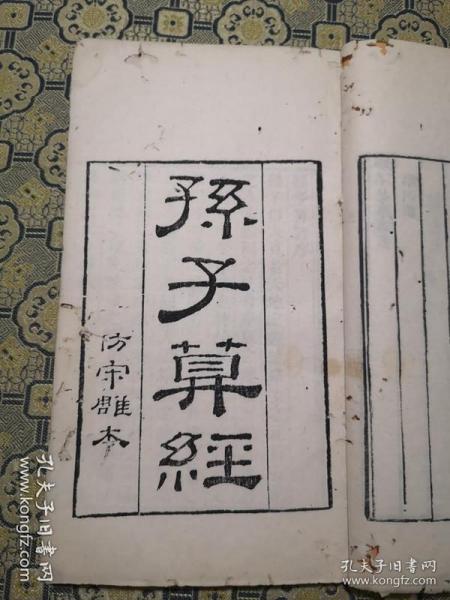 孫子算經
仿宋雕本
孔夫子旧书网
kongfz.com
孔夫子旧书网
https://www.kongfz.com